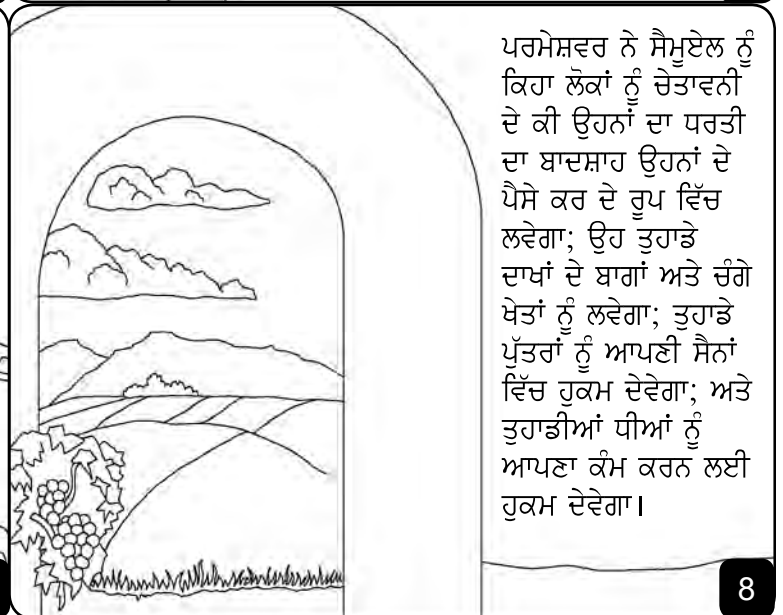 ਪਰਮੇਸ਼ਵਰ ਨੇ ਸੈਮੂਏਲ ਨੂੰ
ਕਿਹਾ ਲੋਕਾਂ ਨੂੰ ਚੇਤਾਵਨੀ
ਦੇ ਕੀ ਉਹਨਾਂ ਦਾ ਧਰਤੀ
ਦਾ ਬਾਦਸ਼ਾਹ ਉਹਨਾਂ ਦੇ
ਪੈਸੇ ਕਰ ਦੇ ਰੂਪ ਵਿੱਚ
ਲਵੇਗਾ; ਉਹ ਤੁਹਾਡੇ
ਦਾਖਾਂ ਦੇ ਬਾਗਾਂ ਅਤੇ ਚੰਗੇ
ਖੇਤਾਂ ਨੂੰ ਲਵੇਗਾ; ਤੁਹਾਡੇ
ਪੁੱਤਰਾਂ ਨੂੰ ਆਪਣੀ ਸੈਨਾਂ
ਵਿੱਚ ਹੁਕਮ ਦੇਵੇਗਾ; ਅਤੇ
ਤੁਹਾਡੀਆਂ ਧੀਆਂ ਨੂੰ
ਆਪਣਾ ਕੰਮ ਕਰਨ ਲਈ
ਹੁਕਮ ਦੇਵੇਗਾ।
8